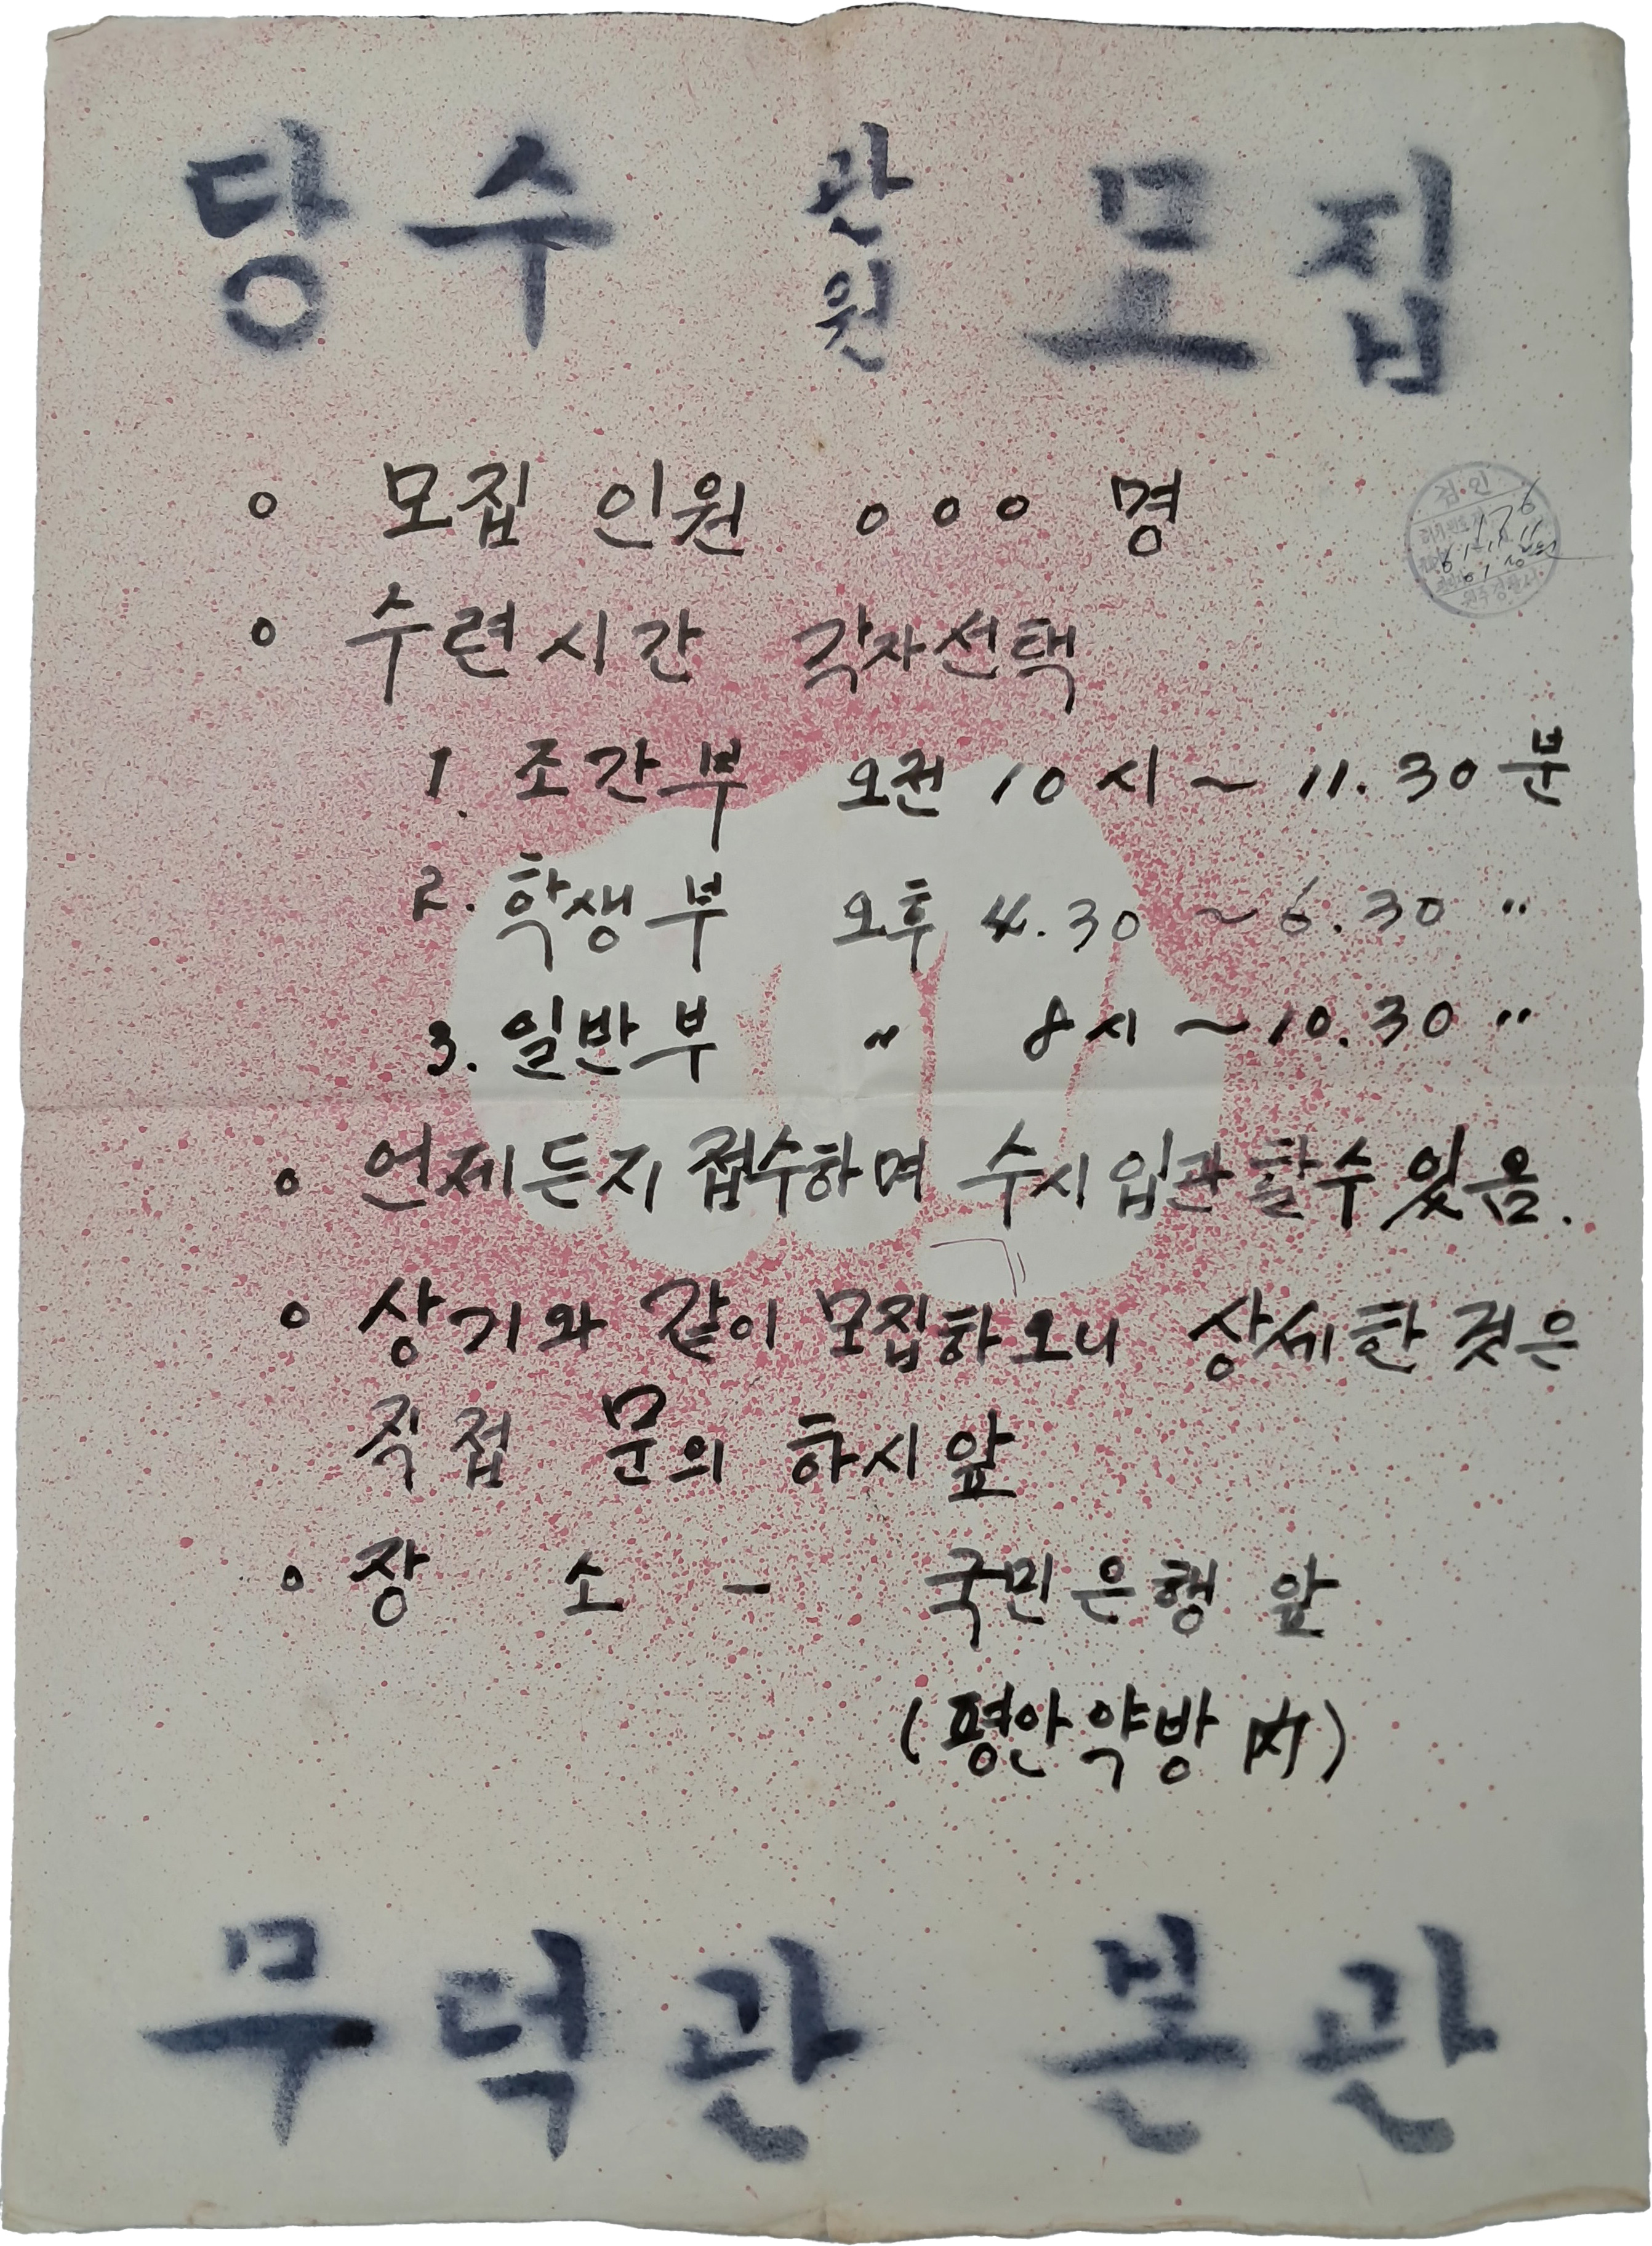 당수 관원 모집
○ 모집 인원 ○○○ 명
검인
원주경찰서
○ 수련시간 각자선택
1. 조간부 오전 10시 ~ 11.30분
2. 학생부 오후 4.30 ~ 6.30 〃
3. 일반부 〃 8시 ~ 10.30 〃
○ 언제든지 접수하며 수시입관할수있음.
○ 상기와 같이 모집하오니 상세한것은
직접 문의 하시앞
○ 장 소 - 국민은행 앞
(평안약방 內)
무덕관 본관